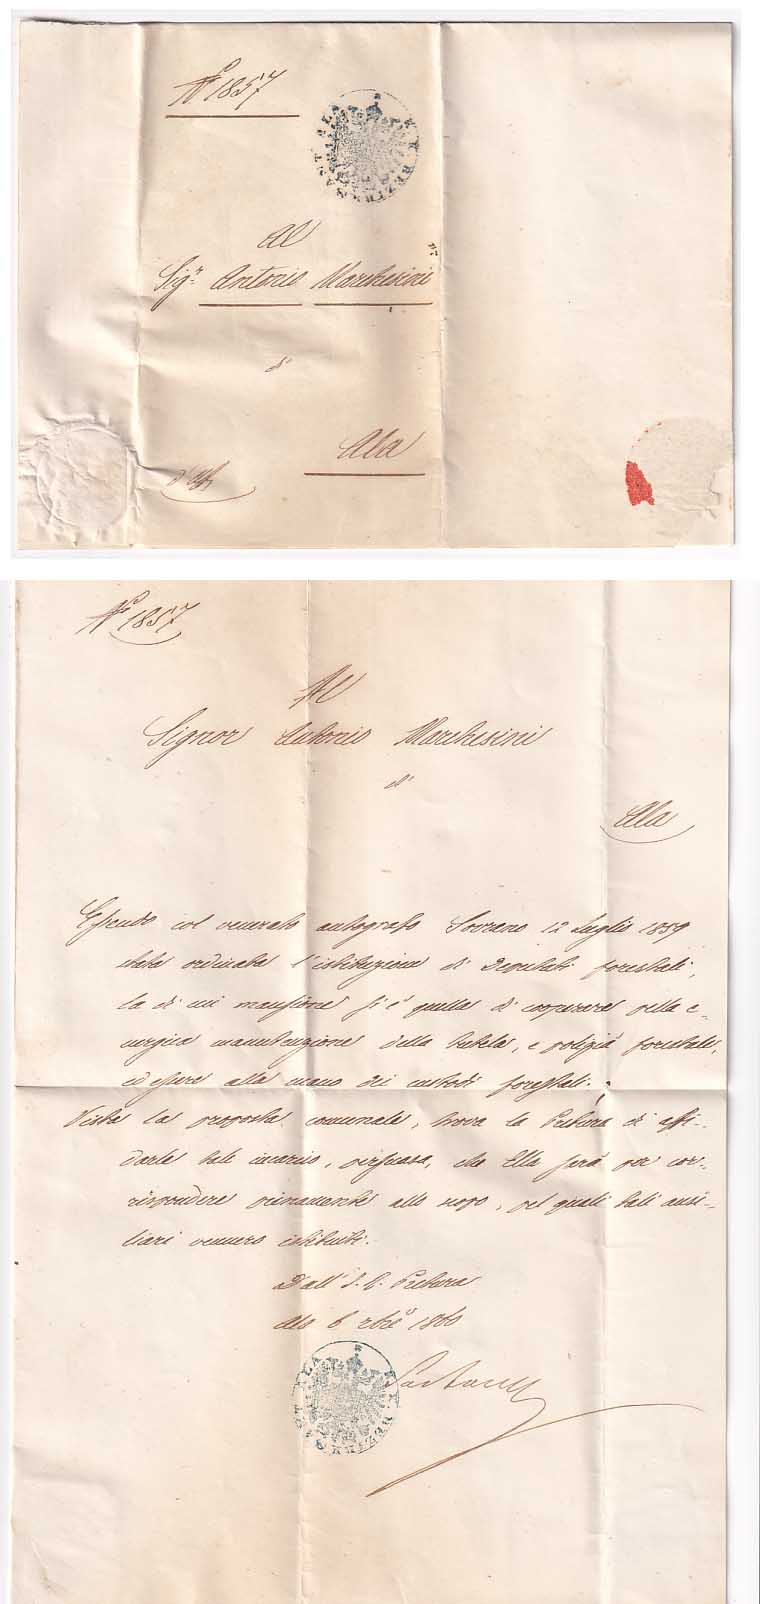 N.° 1857
K. K. BEZIRKSAMT ALA
Al
Sig.r Antonio Marchesini
di
Ala
d'Uff.
N.° 1857
Al
Signor Antonio Marchesini
di
Ala
Essendo col venerato autografo Sovrano 12 Luglio 1859
stata ordinata l'istituzione di Deputati forestali,
la di cui mansione si è quella di cooperare nella e-
nergica manutenzione della tutela, e polizia forestale,
ed essere alla mano dei custodi forestali.
Vista la proposta comunale, trova la Pretura di affi-
darle tale incarico, persuasa, che Ella sarà per cor-
rispondere pienamente allo scopo, pel quale tali ausi-
liari vennero istituiti.
Dall' I. R. Pretura
Ala 6 1860
K. K. BEZIRKSAMT ALA